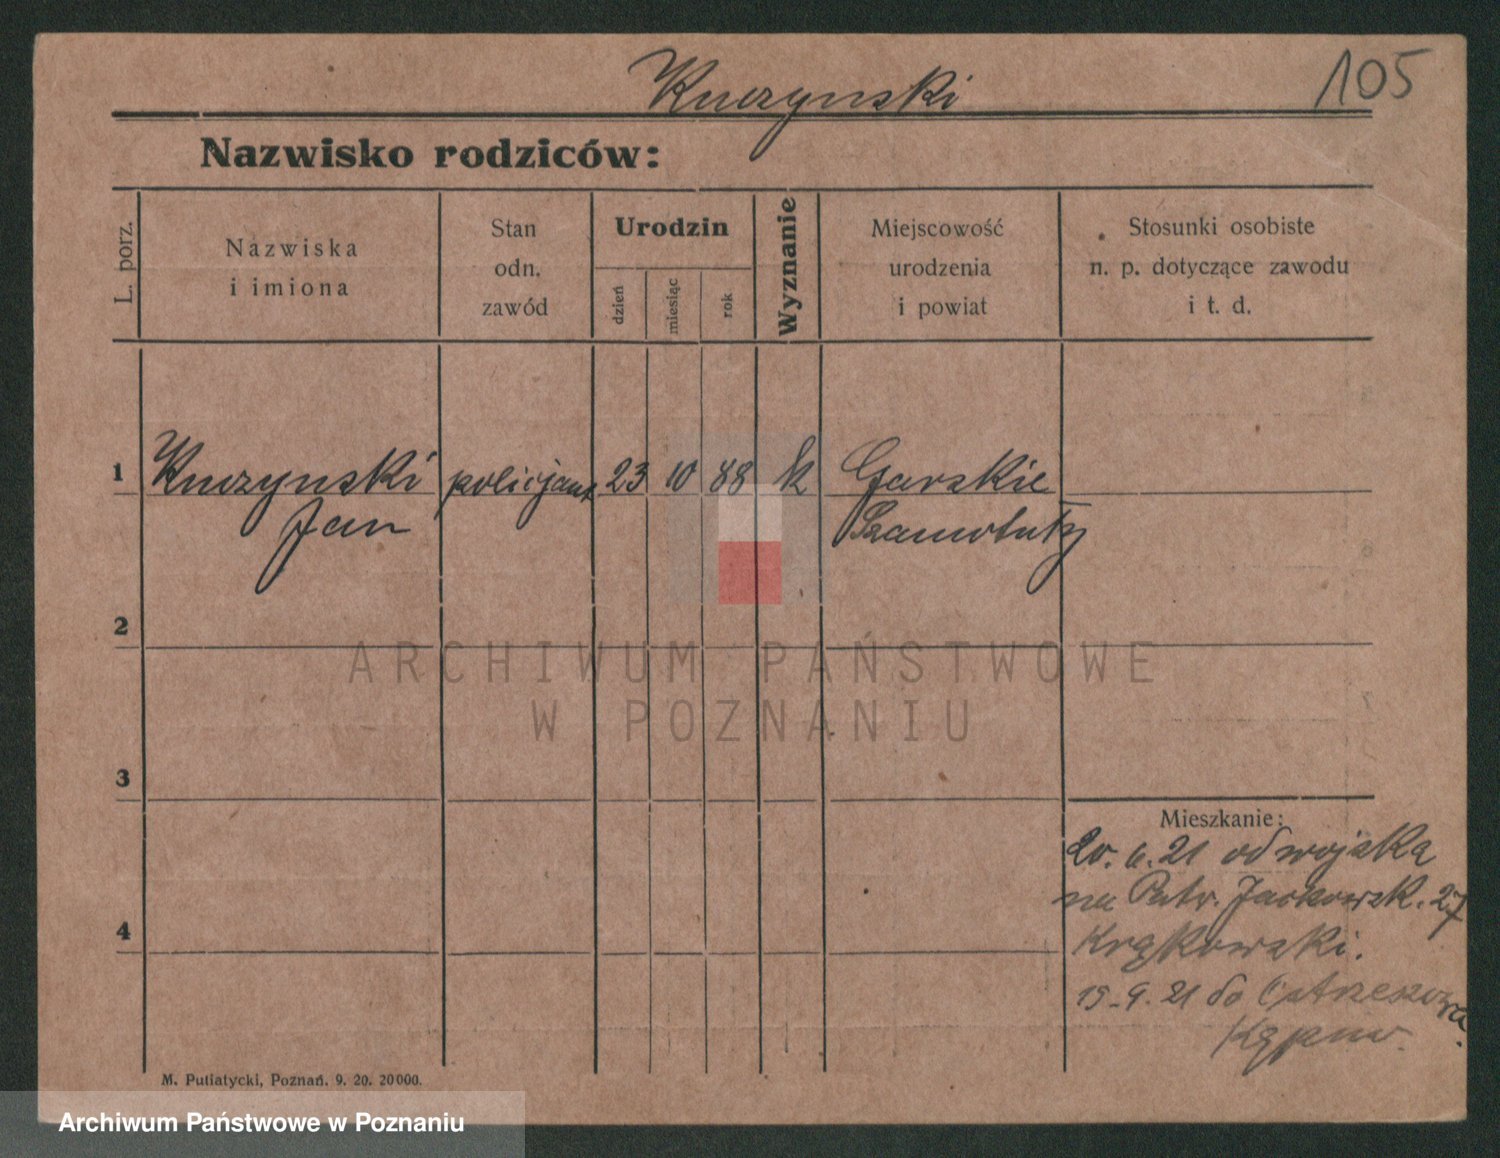 105
Kuczynski
Nazwisko rodziców:
L. porz.
Nazwiska
i imiona
Stan
odn.
zawód
Urodzin
dzień
miesiąc
rok
Wyznanie
Miejscowość
urodzenia
i powiat
Stosunki osobiste
n. p. dotyczące zawodu
i t. d.
1 Kuczynski policjant 23 10 88 k
Jan Szamotuły
2
3
4
Mieszkanie:
20. 6. 21 od wojska
na Patr. Jackowsk. 27
Krąkowski.
15-9. 21 do
M. Putiatycki, Poznań. 9. 20. 20000.
ARCHIWUM PAŃSTWOWE
W POZNANIU
Archiwum Państwowe w Poznaniu